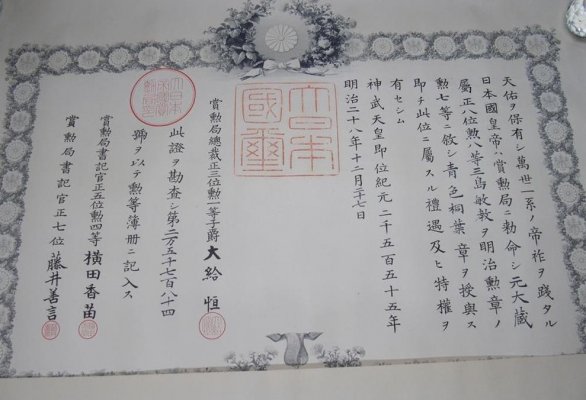 天佑ヲ保有シ萬世一系ノ帝祚ヲ踐タル
日本國皇帝ハ賞勲局ニ勅命シ元大蔵
屬正八位勲八等三島敏教ヲ明治勲章ノ
勲七等ニ敘シ青色桐葉章ヲ授與ス
即チ此位ニ屬スル禮遇及ヒ特權ヲ
有セシム
神武天皇即位紀元二千五百五十五年
明治二十八年十二月二十七日
大日本國璽
賞勲局總裁正三位勲一等子爵大給恒
此證ヲ勘査シ第二万五千七百八十四
號ヲ以テ勲等簿册ニ記入ス
賞勲局書記官正五位勲四等横田香苗
賞勲局書記官正七位藤井善言